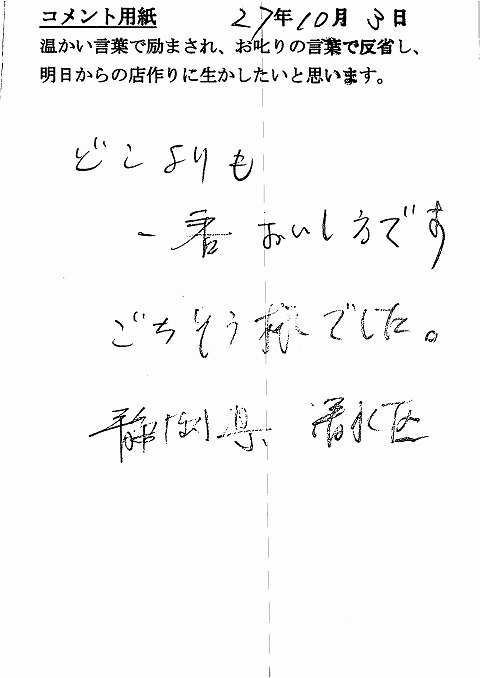 コメント用紙 27年10月3日
温かい言葉で励まされ、お叱りの言葉で反省し、
明日からの店作りに生かしたいと思います。
どこよりも
一番おいしうです
ごちそう様でした。
静岡県 清水区